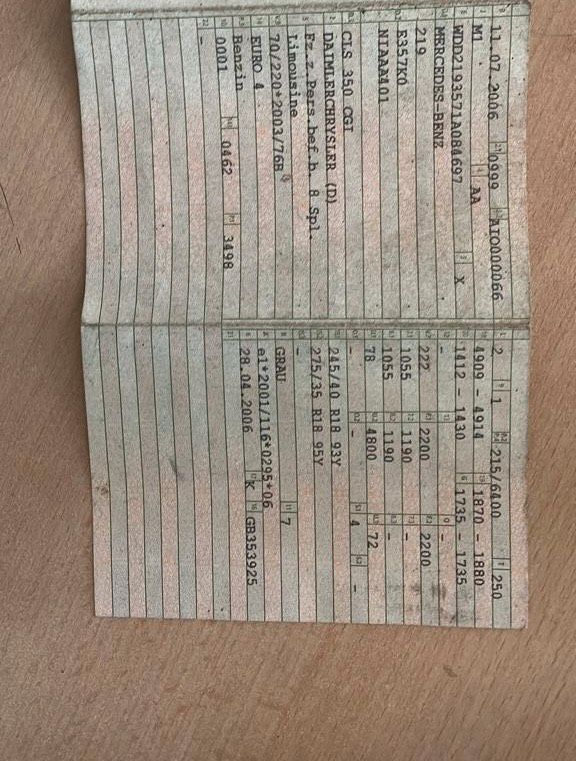 11.07.2006 0999 AIO000066
M1 AA
WDD2193571A084697 X
MERCEDES-BENZ
219
R357K0
NIAAA401
CLS 350 CGI
DAIMLERCHRYSLER (D)
Fz.z.Pers.bef.b. 8 Spl.
Limousine
70/220*2003/76B
EURO 4
Benzin
0001 0462 3498
-
2 1 215/6400 250
4909 - 4914 1870 - 1880
1412 - 1430 1735 - 1735
- -
222 2200 2200
1055 1190 -
1055 1190 -
78 4800 72
- - 4 -
245/40 R18 93Y
275/35 R18 95Y
-
GRAU 7
e1*2001/116*0295*06
28.04.2006 K GB353925